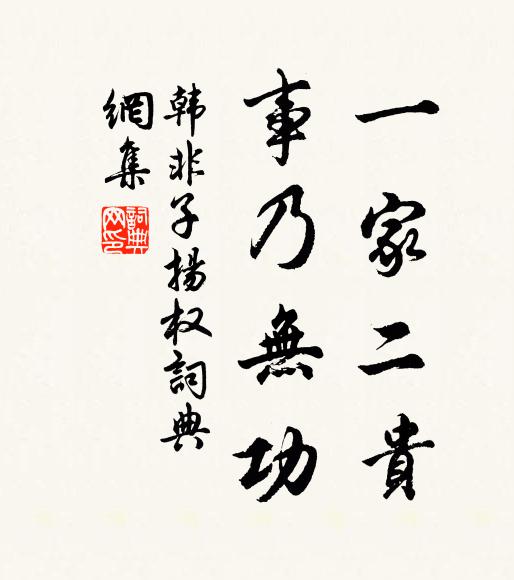 一家二貴
事乃無功
韩非子揚权詞典
網集
詞典
网印